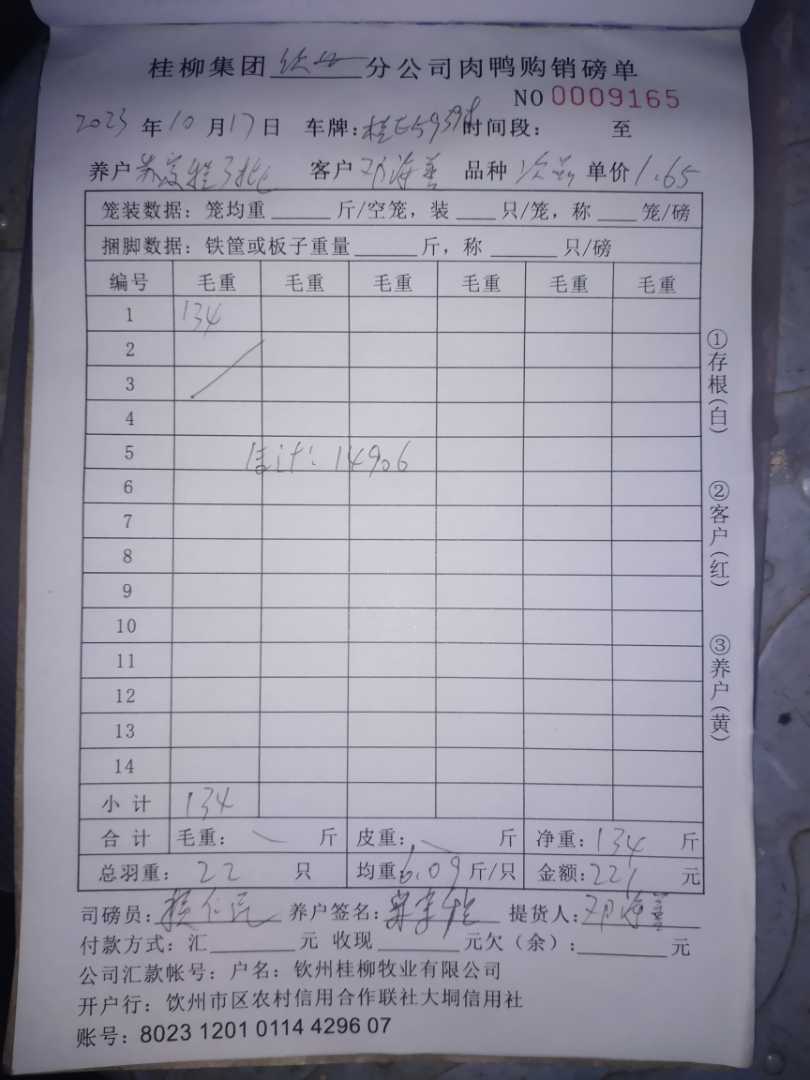 桂柳集团 分公司肉鸭购销磅单
NO 0009165
2023 年 10 月 17 日 车牌: 时间段: 至
养户 客户 邓海善 品种 次品 单价 1.65
笼装数据: 笼均重 斤/空笼, 装 只/笼, 称 笼/磅
捆脚数据: 铁筐或板子重量 斤, 称 只/磅
编号 毛重 毛重 毛重 毛重 毛重 毛重
1 134
2
3
4
5 总计: 14906
6
7
8
9
10
11
12
13
14
小计 134
合计 毛重: 斤 皮重: 斤 净重: 134 斤
总羽重: 22 只 均重: 6.09 斤/只 金额: 221 元
司磅员: 养户签名: 提货人: 邓海善
付款方式: 汇 元 收现 元欠(余): 元
公司汇款帐号: 户名: 钦州桂柳牧业有限公司
开户行: 钦州市区农村信用合作联社大垌信用社
账号: 8023 1201 0114 4296 07
①存根(白)
②客户(红)
③养户(黄)